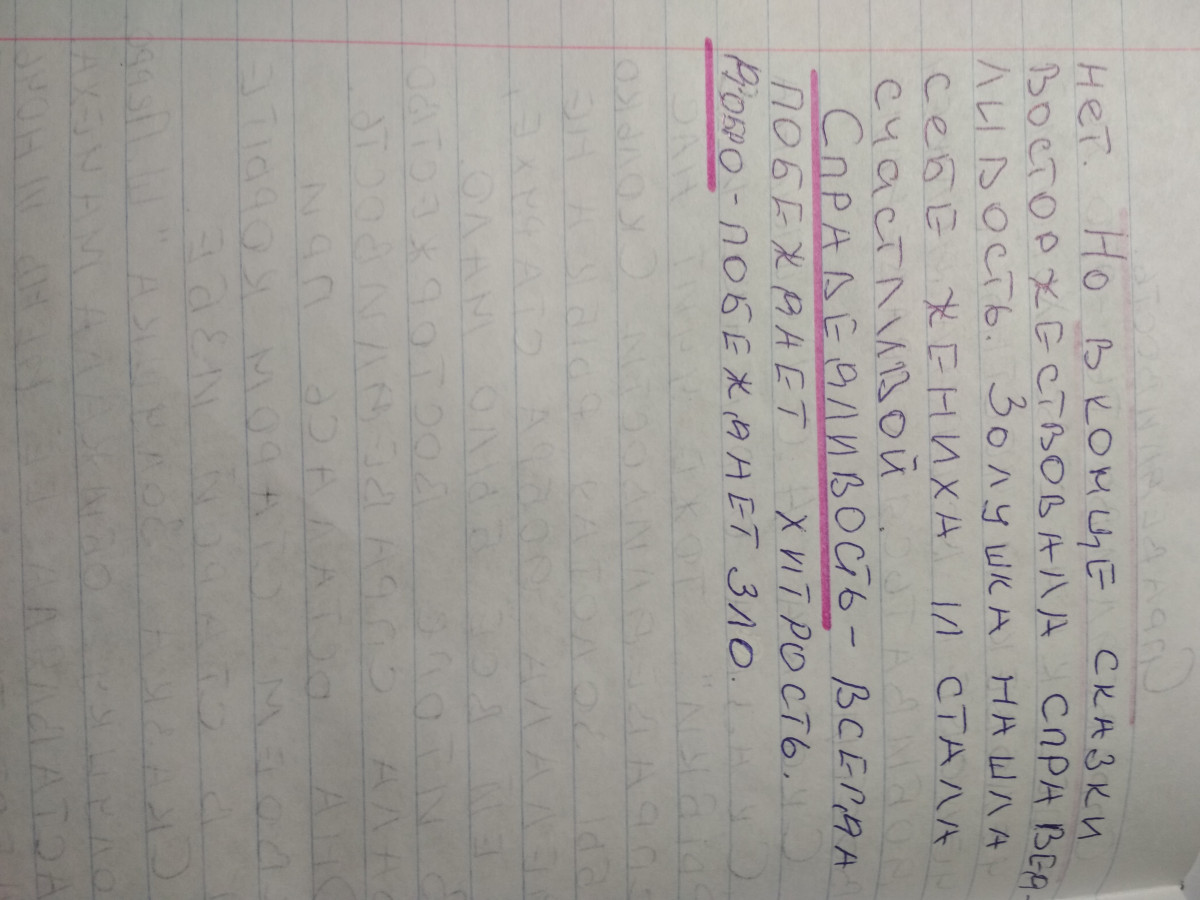 нет. Но в конце сказки
восторжествовала справед-
ливость. Золушка нашла
себе жениха и стала
счастливой.
Справедливость - всегда
побеждает хитрость.
Добро - побеждает зло.